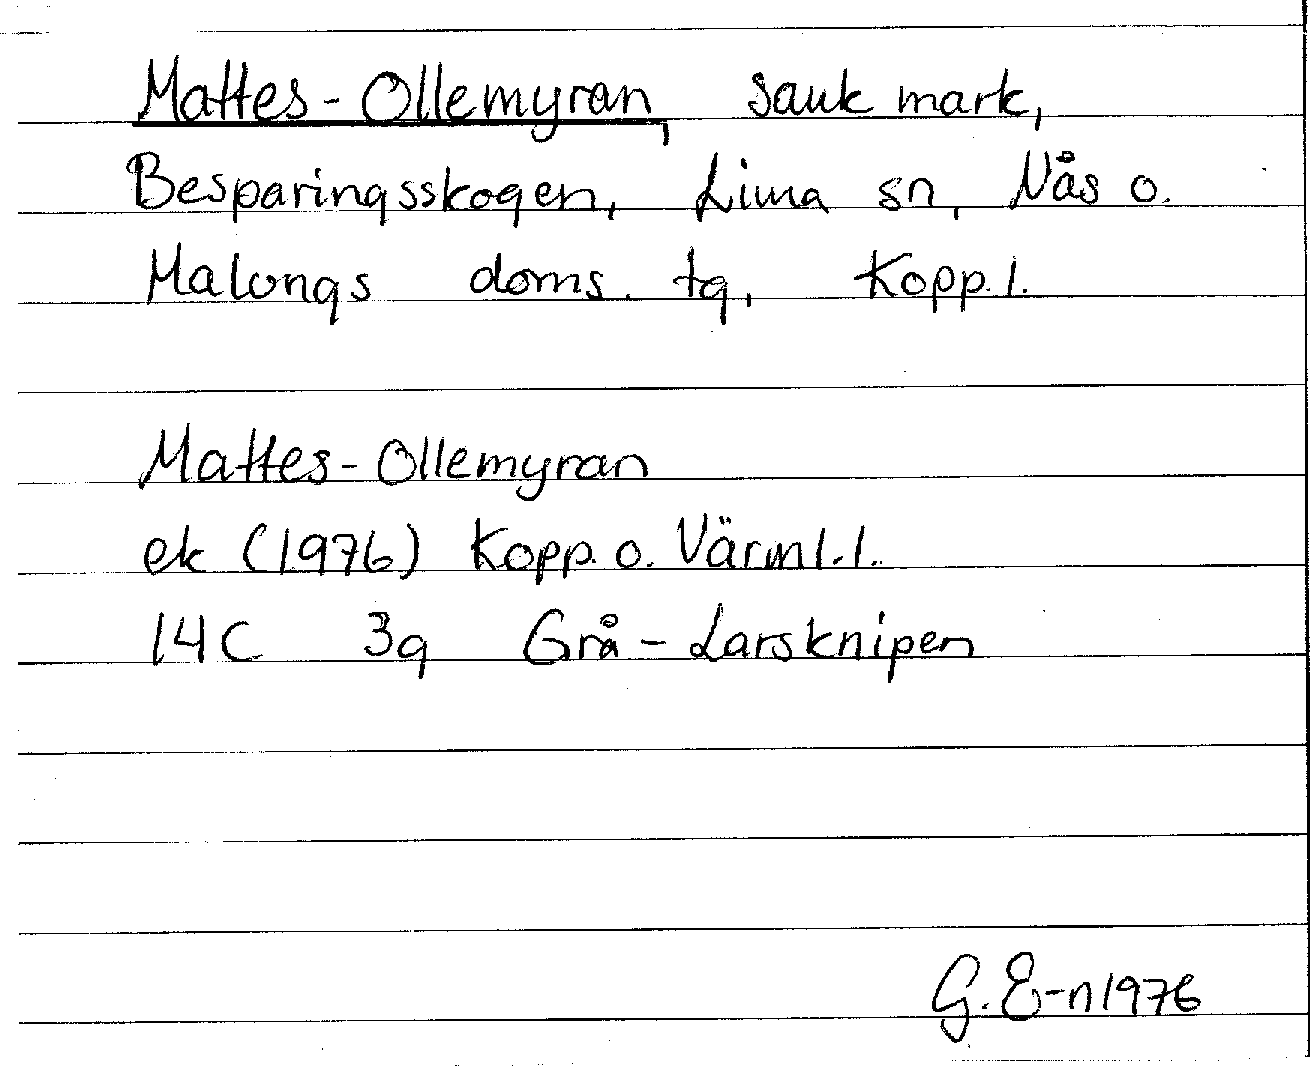 Mattes-Ollemyran, sank mark,
Besparingsskogen, Lima sn, Nås o.
Malungs doms. tg, Kopp. l.
Mattes-Ollemyran
ek (1976) Kopp. o. Värml. l.
14C 3g Grå-Larsknipen
G. E-n 1976